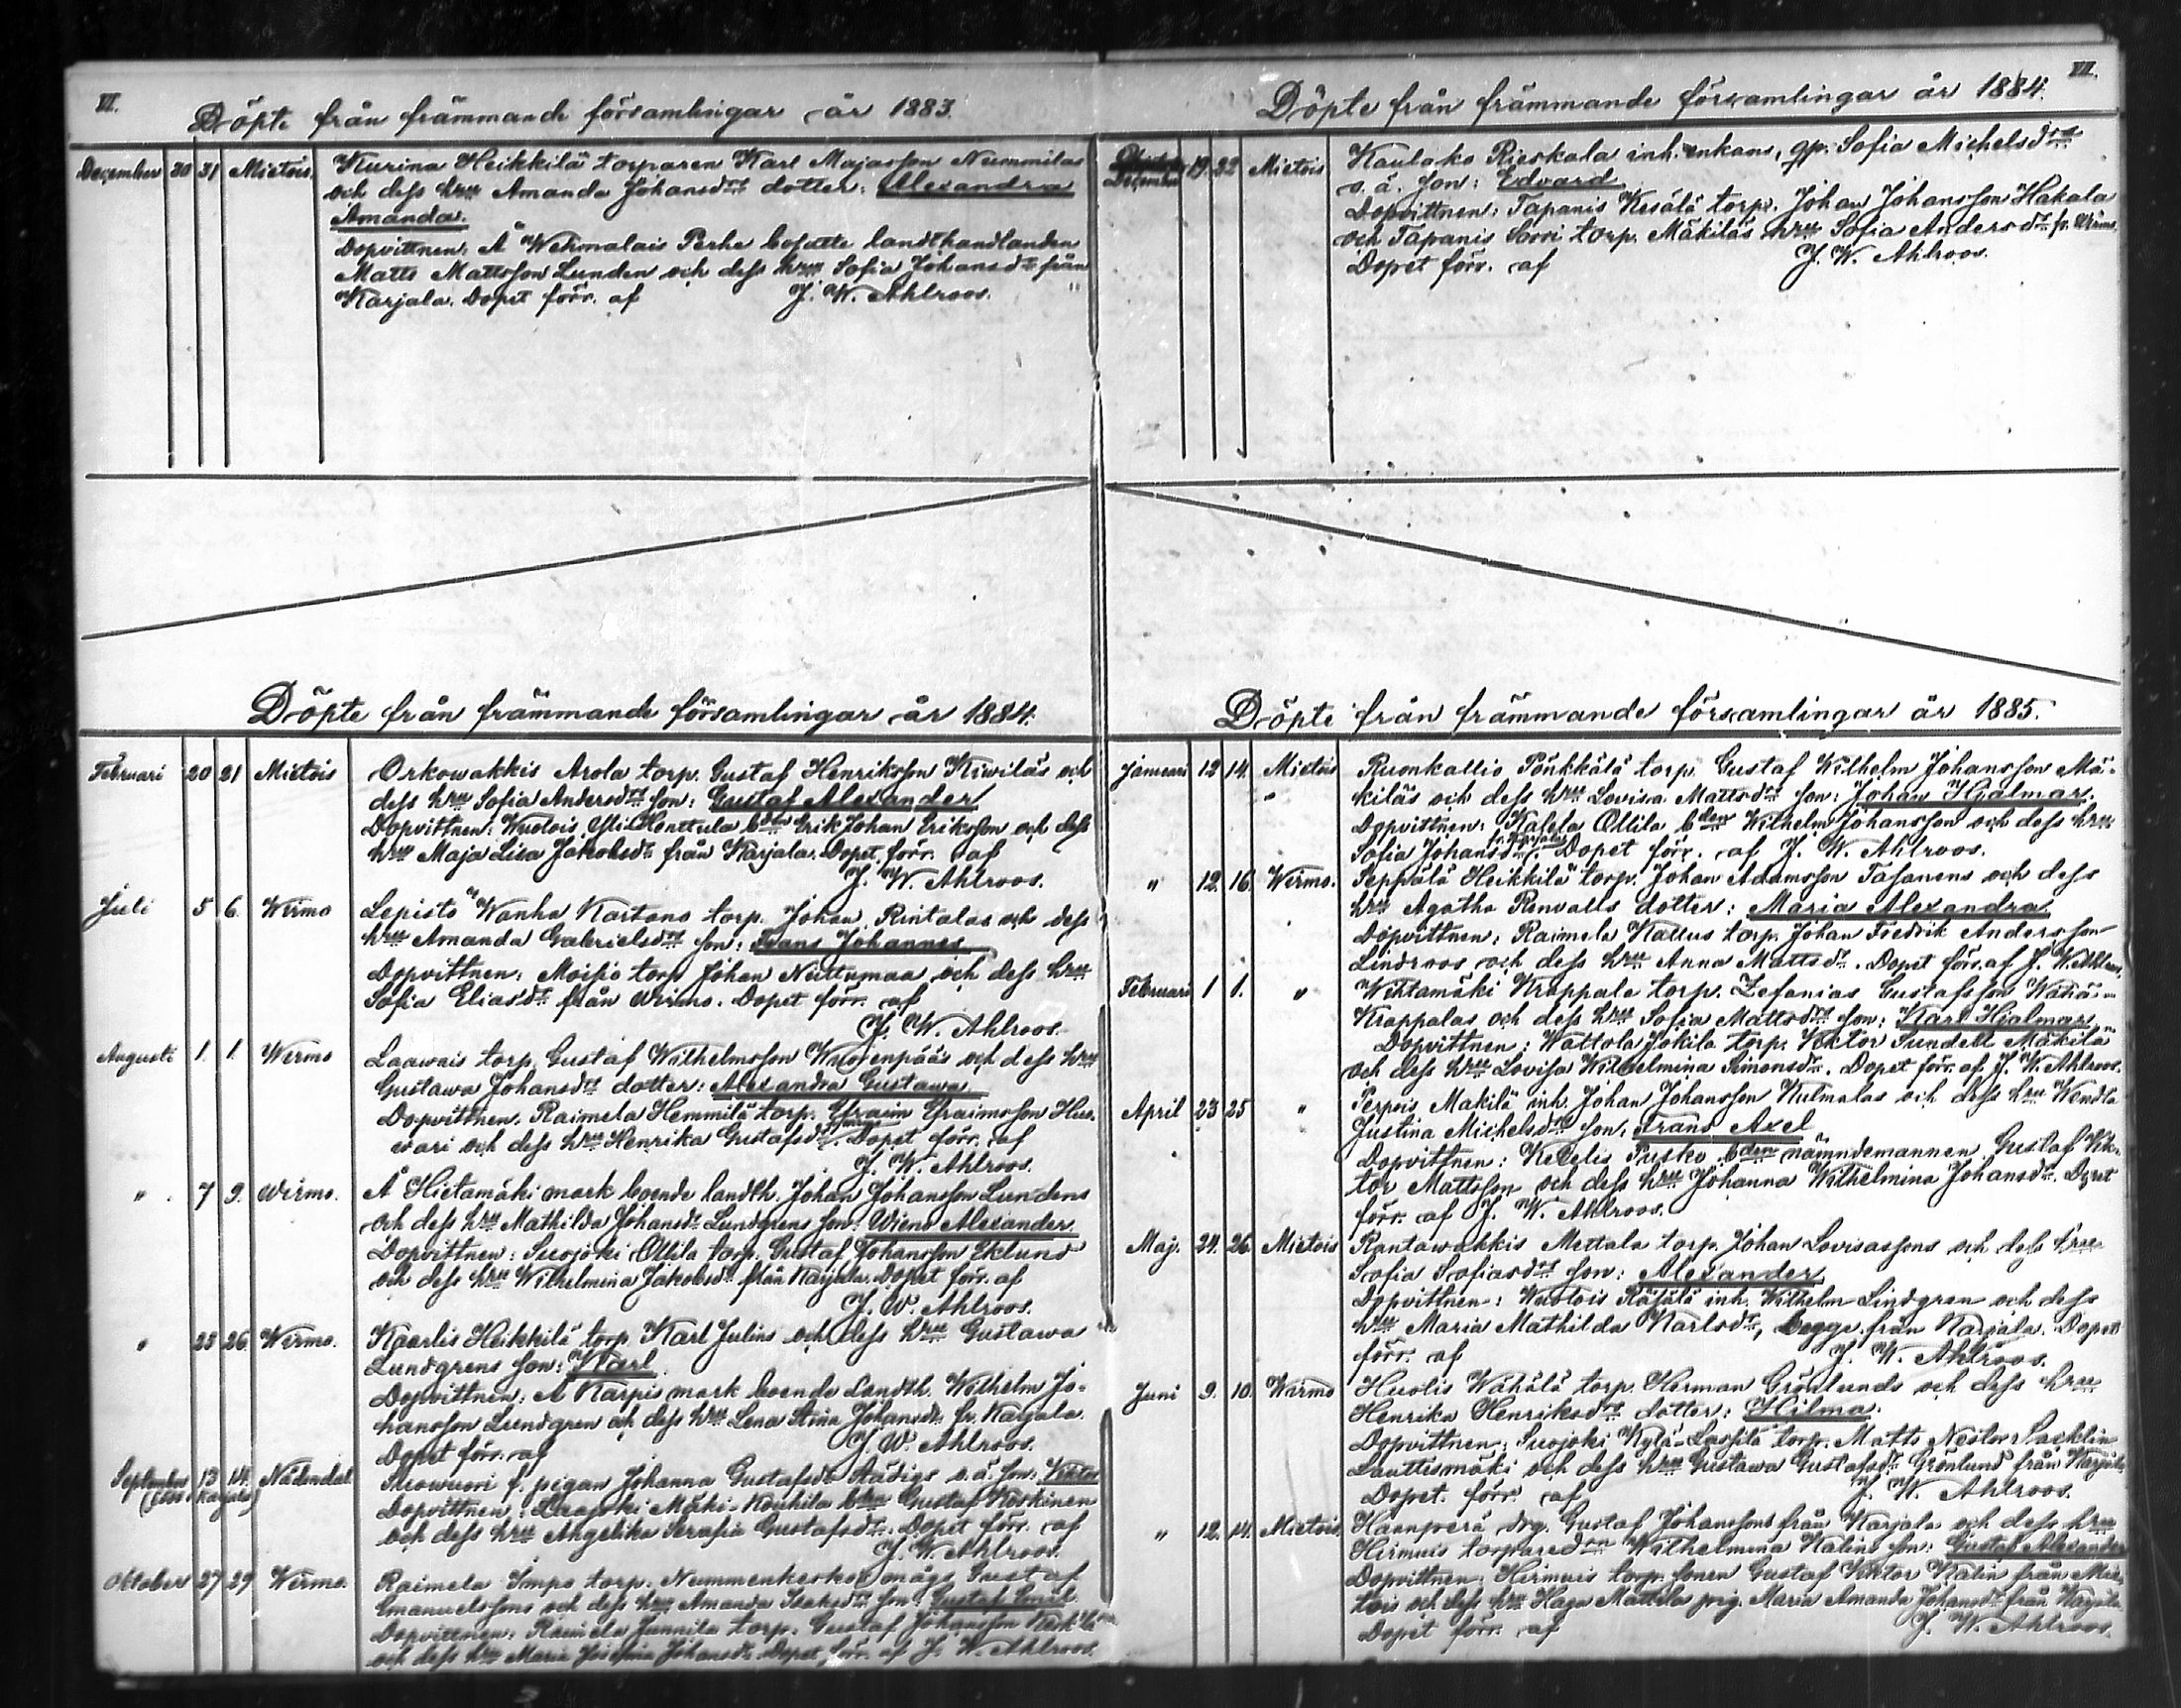 VI.
Döpte från främmande församlingar år 1883.
December 30 31 Mietois. Kurina Heikkilä torparen Karl Majasson Nummilas
och dess hru Amanda Johansdrs dotter: Alexandra
Amanda.
Dopvittnen: Å Wehmalais Perhe bosatte landthandlanden
Matts Mattsson Lunden och dess hru Sofia Johansdr från
Karjala. Dopet förr. af J. W. Ahlroos.
Döpte från främmande församlingar år 1884.
Februari 20 21 Mietois Orkowakkis Arola torp. Gustaf Henriksson Kiwiläs och
dess hru Sofia Andersdrs son: Gustaf Alexander
Dopvittnen: Wuolois Yli Henttula bden Erik Johan Eriksson och dess
hru Maja Lisa Jakobsdr från Karjala. Dopet förr. af
J. W. Ahlroos.
Juli 5 6. Wirmo Lepistö Wanha Kartano torp. Johan Rintalas och dess
hru Amanda Gabrielsdrs son: Frans Johannes
Dopvittnen: Moisio torp. Johan Niittumaa och dess hru
Sofia Eliasdr från Wirmo. Dopet förr. af
J. W. Ahlroos.
Augusti 1. 1. Wirmo Laawais torp. Gustaf Wilhelmsson Wuorenpääs och dess hru
Gustawa Johansdrs dotter: Alexandra Gustawa
Dopvittnen. Raimela Hemmilä torp. Efraim Efraimsson Hus-
wari och dess hru Henrika Gustafsdr. Dopet förr. af
J. W. Ahlroos.
" 7 9. Wirmo. Å Hietamäki mark boende landth. Johan Johansson Lundens
och dess hru Mathilda Johansdr Lundgrens son: Wiene Alexander
Dopvittnen: Suojoki Ollila torp. Gustaf Johansson Eklund
och dess hru Wilhelmina Jakobsdr från Karjala. Dopet förr. af
J. W. Ahlroos.
" 25 26 Wirmo. Kaarlis Heikkilä torp. Karl Julius och dess hru Gustawa
Lundgrens son: Karl
Dopvittnen: Å Karpis mark boende Landth. Wilhelm Jo-
hansson Lundgren och dess hru Lena Stina Johansdr fr. Karjala.
Dopet förr. af J. W. Ahlroos.
September 13 14. Nådendal f. pigan Johanna Gustafsdr Städigs o. ä. son: Viktor
Dopvittnen: Mäki-Kouhila bden Gustaf Koskinen
och dess hru Angelika Serafia Gustafsdr. Dopet förr. af
J. W. Ahlroos.
Oktober 27 29 Wirmo. Raimela Simpo torp. Gustaf
Emanuelssons och dess hru Amanda Isaksdrs son: Gustaf Emil
Dopvittnen: Raimela Junnila torp. Gustaf Johansson
och dess hru Maria Josefina Johansdr. Dopet förr. af J. W. Ahlroos.
VII.
Döpte från främmande församlingar år 1884.
December 19. 22 Mietois Kauloko Rieskala inh. enkans, gp. Sofia Michelsdrs
o. ä. son: Edvard
Dopvittnen: Tapanis Kesälä torp. Johan Johansson Hakala
och Tapanis Sorri torp. Mäkiläs hru Sofia Andersdr fr. Wirmo.
Dopet förr. af J. W. Ahlroos.
Döpte från främmande församlingar år 1885.
Januari 12 14. Mietois Ruonkallio Pönkkälä torp. Gustaf Wilhelm Johansson Mä-
kiläs och dess hru Lovisa Mattsdrs son: Johan Hjalmar.
Dopvittnen: Kalela Ollila bden Wilhelm Johansson och dess hru
Sofia Johansdr. fr. Karjala Dopet förr. af J. W. Ahlroos.
" 12. 16. Wirmo. Seppälä Heikkilä torp. Johan Adamsson Tasanens och dess
hru Agatha Renvalls dotter: Maria Alexandra.
Dopvittnen: Raimela Kattus torp. Johan Fredrik Andersson
Lindroos och dess hru Anna Mattsdr. Dopet förr. af J. W. Ahlroos.
Februari 1 1. " Wihtamäki Krappala torp. Zefanias Gustafsson Wähä-
Krappalas och dess hru Sofia Mattsdrs son: Karl Hjalmar
Dopvittnen: Wattola Jokila torp. Viktor Sundell Mäkilä
och dess hru Lovisa Wilhelmina Simonsdr. Dopet förr. af J. W. Ahlroos.
April 23 25 " Perpois Makilä inh. Johan Johansson Kulmalas och dess hru Wendla
Justina Michelsdrs son: Frans Axel
Dopvittnen: Kekelis Pusko bden nämndemannen Gustaf Vik-
tor Mattsson och dess hru Johanna Wilhelmina Johansdr. Dopet
förr. af J. W. Ahlroos.
Maj. 24. 26. Mietois Rantawakkis Mettala torp. Johan Lovisassons och dess hru
Sofia Sofiasdrs son: Alexander
Dopvittnen: Wuolois Räsälä inh. Wilhelm Lindgren och dess
hru Maria Mathilda Karlsdr, begge från Karjala. Dopet
förr. af J. W. Ahlroos.
Juni 9. 10. Wirmo Huolis Wähälä torp. Herman Grönlunds och dess hru
Henrika Henriksdrs dotter: Hilma.
Dopvittnen: Suojoki Kylä-Lassila torp. Matts Nestor Sacklin
Lauttismäki och dess hru Gustawa Gustafsdr Grönlund från Karjala.
Dopet. förr. af J. W. Ahlroos.
" 12. 14. Mietois. Haanperä drg. Gustaf Johanssons från Karjala och dess hru
Hirmuis torparedrn Wilhelmina Kalins son: Gustaf Alexander
Dopvittnen: Hirmuis torp. sonen Gustaf Viktor Kalin från Mie-
tois och dess hru Haga Mattilas pig. Maria Amanda Johansdr från Karjala.
Dopet förr. af J. W. Ahlroos.